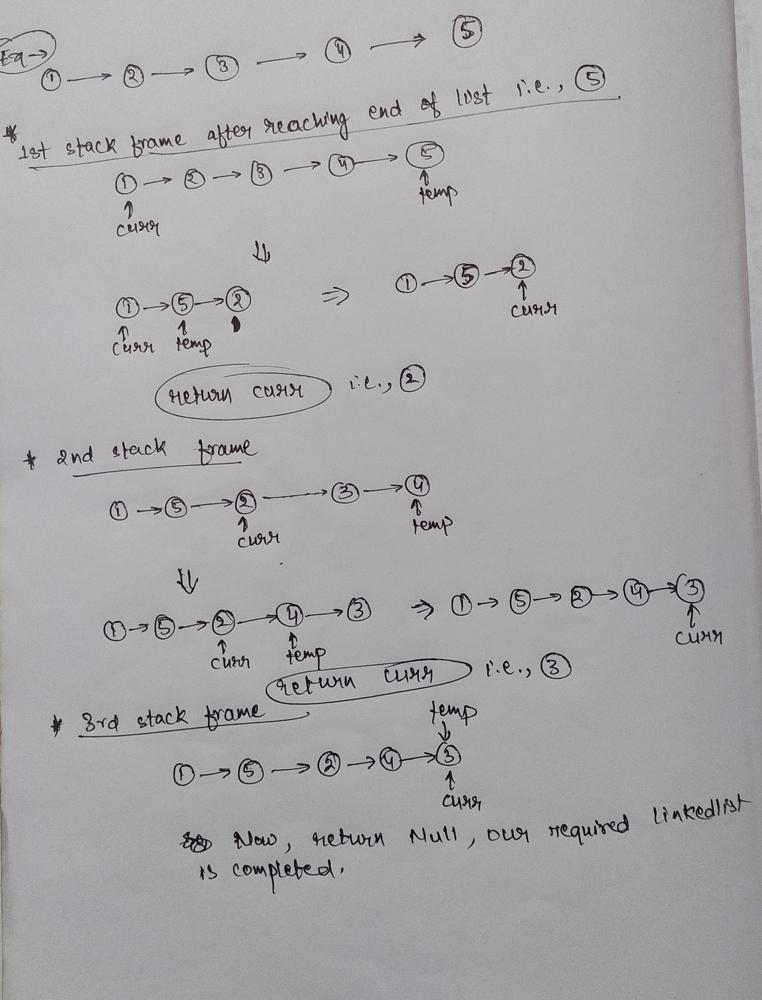 Eg →
① → ② → ③ → ④ → ⑤
* 1st stack frame after reaching end of list i.e., ⑤
① → ② → ③ → ④ → ⑤
↑ ↑
curr temp
⇓
① → ⑤ → ② ⇒ ① → ⑤ → ②
↑ ↑ ↑
curr temp curr
return curr i.e., ②
* 2nd stack frame
① → ⑤ → ② → ③ → ④
↑ ↑
curr temp
⇓
① → ⑤ → ② → ④ → ③ ⇒ ① → ⑤ → ② → ④ → ③
↑ ↑ ↑
curr temp curr
return curr i.e., ③
* 3rd stack frame
temp
↓
① → ⑤ → ② → ④ → ③
↑
curr
Now, return Null, our required linkedlist
is completed.